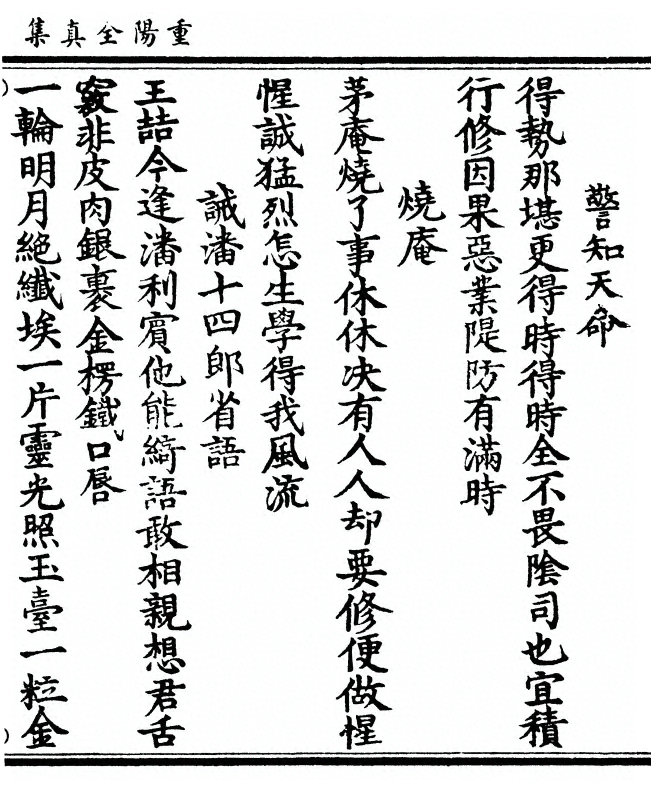 重陽全真集
警知天命
得勢那堪更得時得時全不畏陰司也宜積
行修因果惡業隄防有滿時
燒庵
茅庵燒了事休休决有人人却要修便做惺
惺誠猛烈怎生學得我風流
誡潘十四郎省語
王喆今逢潘利賓他能綺語敢相親想君舌
竅非皮肉銀裹金楞鐵口唇
一輪明月絕纖埃一片靈光照玉臺一粒金